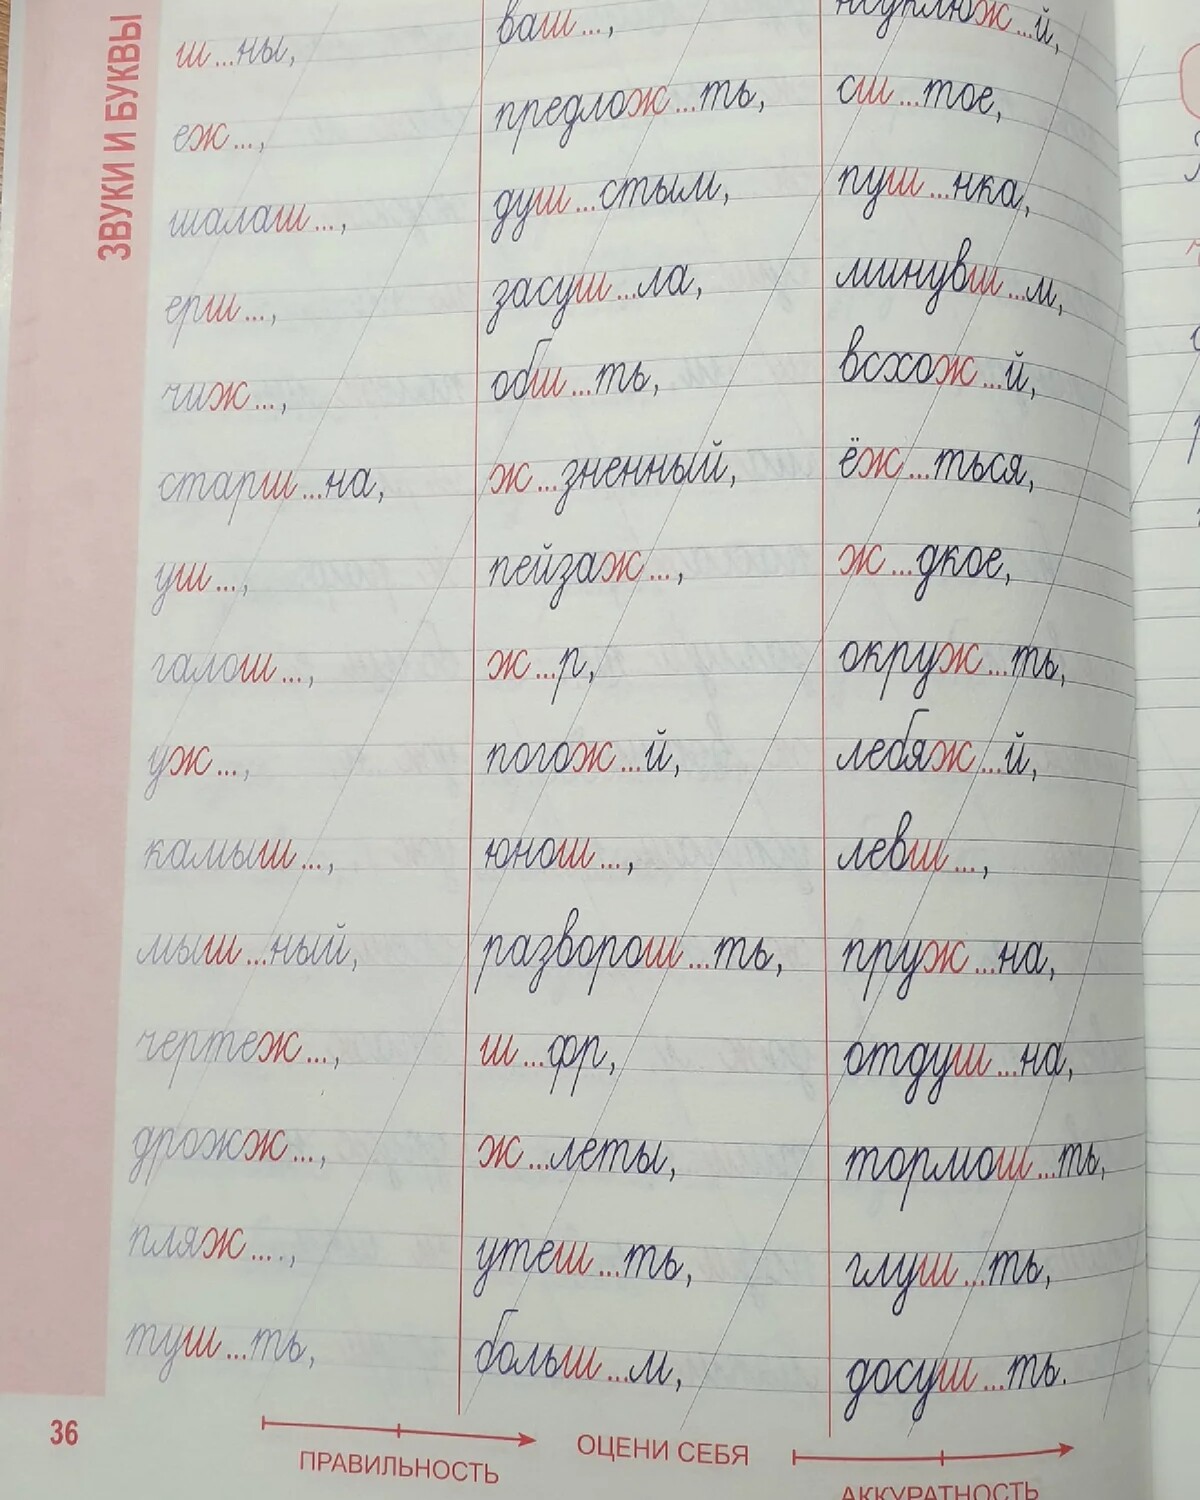 ЗВУКИ И БУКВЫ
ш...ны,
еж...,
шалаш...,
ерш...,
чиж...,
старш...на,
уш...,
галош...,
уж...,
камыш...,
мыш...ный,
чертеж...,
дрожж...,
пляж....,
туш...ть,
ваш...,
предлож...ть,
душ...стым,
засуш...ла,
обш...ть,
ж...зненный,
пейзаж...,
ж...р,
погож...й,
юнош...,
разворош...ть,
ш...фр,
ж...леты,
утеш...ть,
больш...м,
неуклюж...й,
сш...тое,
пуш...нка,
минувш...м,
всхож...й,
ёж...ться,
ж...дкое,
окруж...ть,
лебяж...й,
левш...,
пруж...на,
отдуш...на,
тормош...ть,
глуш...ть,
досуш...ть.
36
ПРАВИЛЬНОСТЬ
ОЦЕНИ СЕБЯ
АККУРАТНОСТЬ